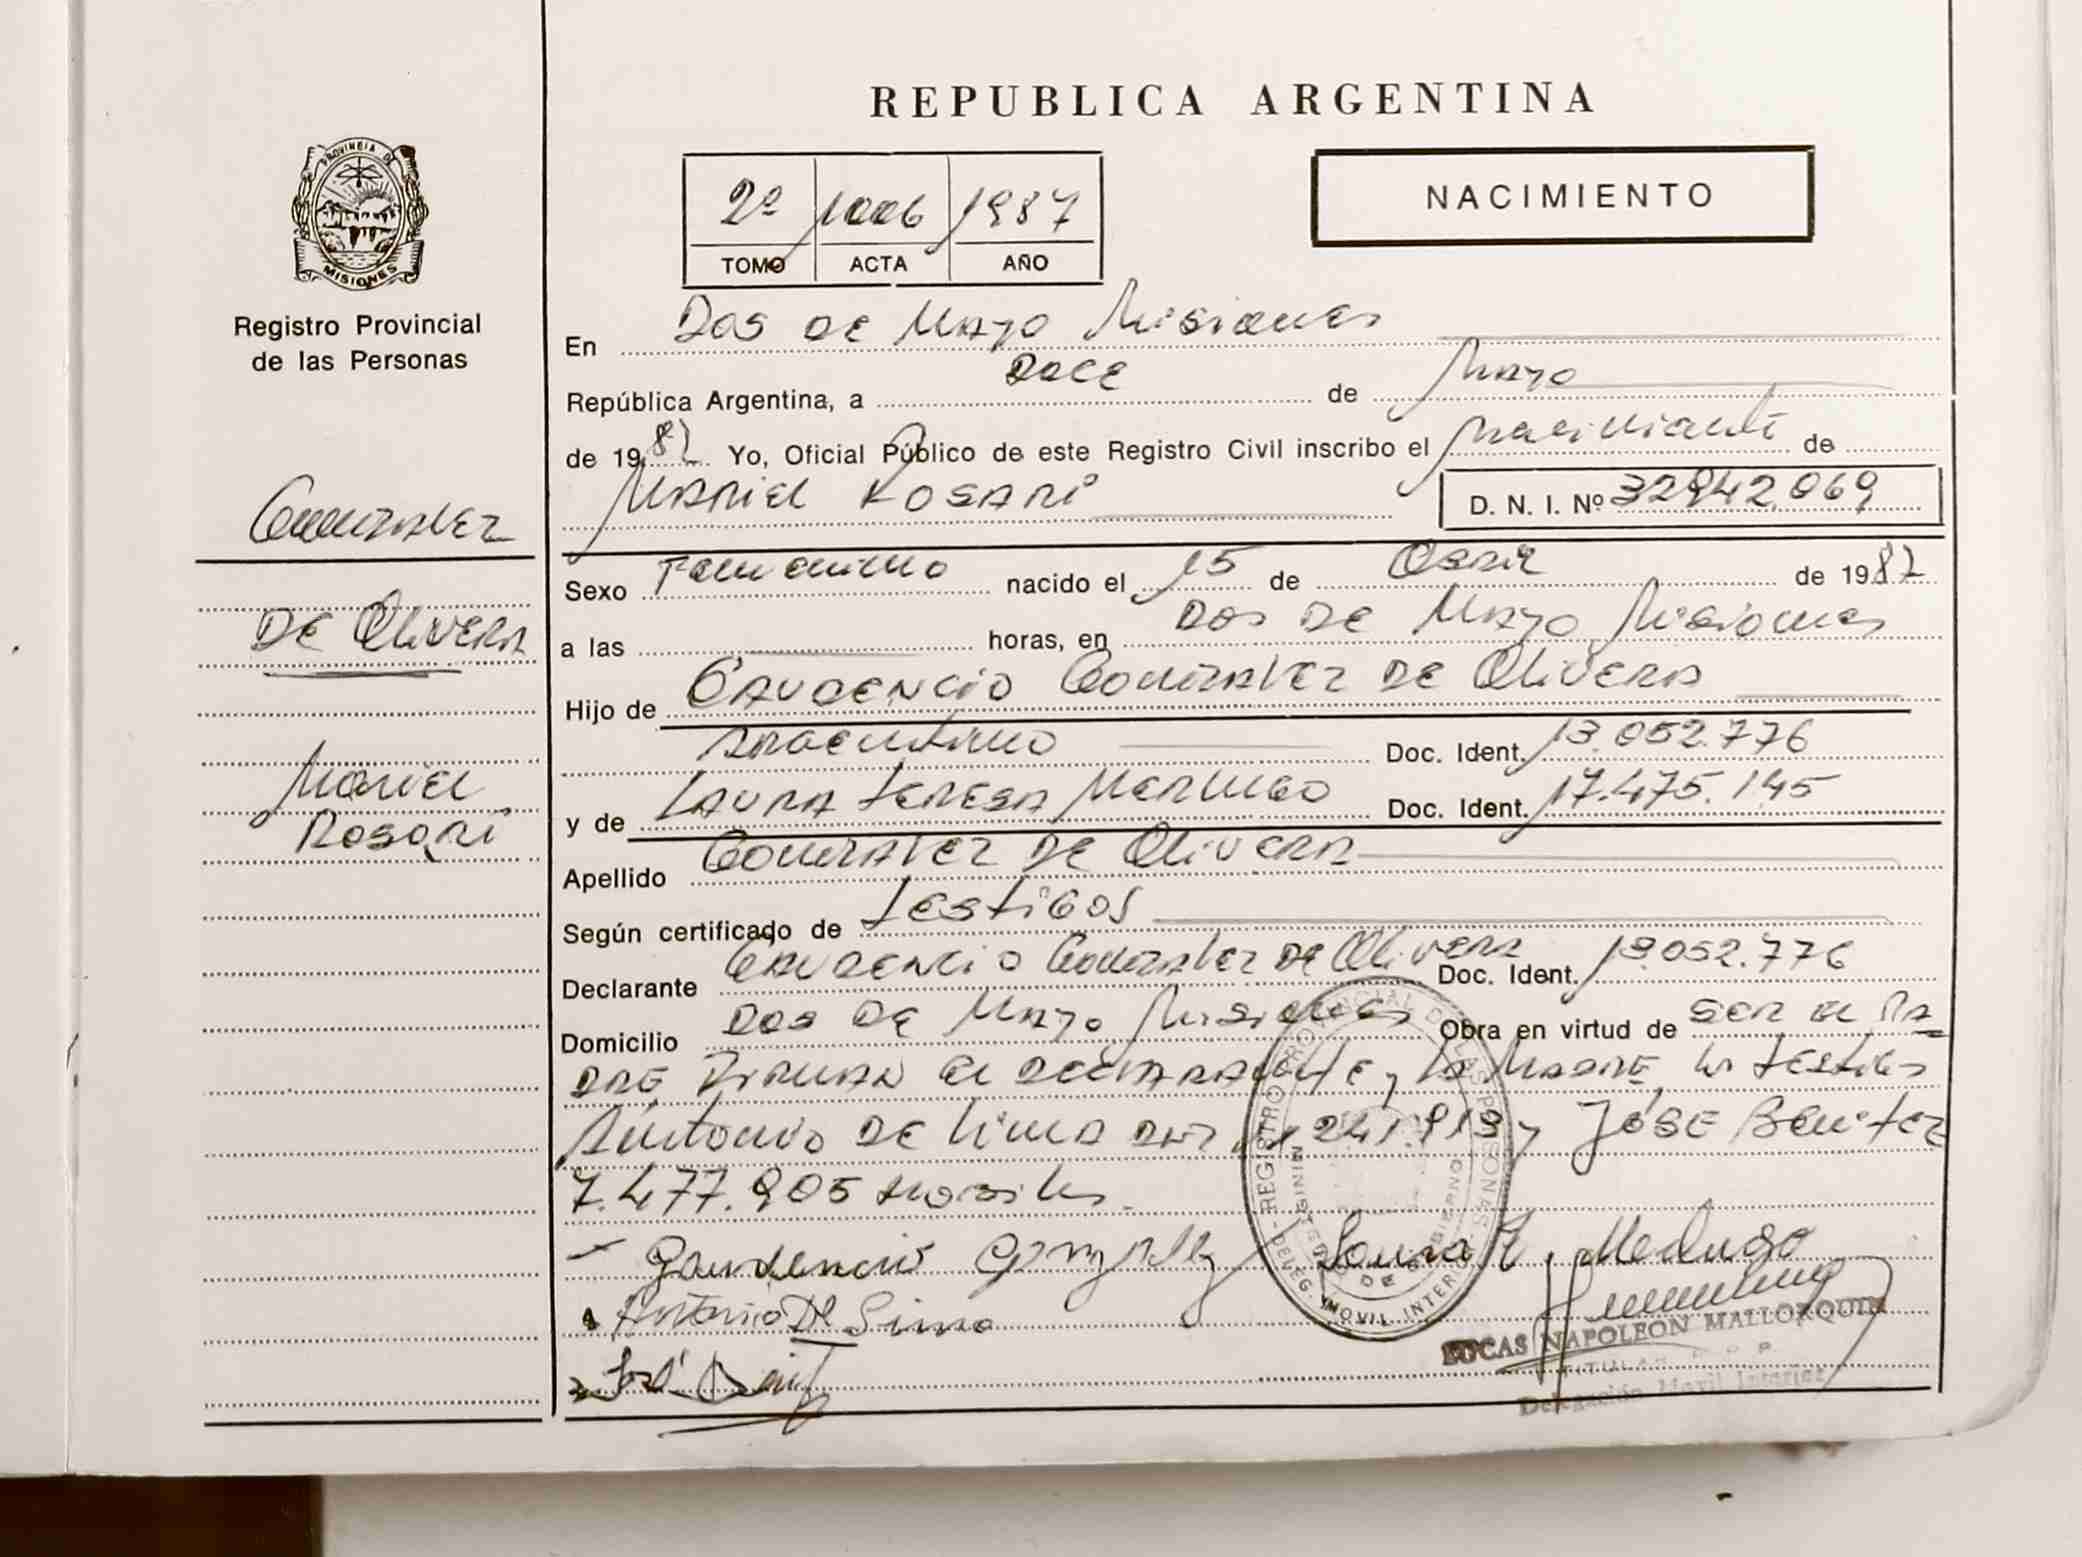 REPUBLICA ARGENTINA
PROVINCIA DE
MISIONES
Registro Provincial
de las Personas
2º 1006 1987
TOMO ACTA AÑO
NACIMIENTO
En Dos de Mayo Misiones
República Argentina, a Doce de Mayo
de 1987 Yo, Oficial Público de este Registro Civil inscribo el Nacimiento de
Mariel Rosari
D. N. I. Nº 32942.069
Gonzalez
de Olivera
Mariel
Rosari
Sexo Femenino nacido el 15 de de 1987
a las horas, en Dos de Mayo Misiones
Hijo de Gaudencio Gonzalez de Olivera
Argentino Doc. Ident. 13.052.776
y de Laura Teresa Doc. Ident. 17.475.145
Apellido Gonzalez de Olivera
Según certificado de Testigos
Declarante Gaudencio Gonzalez de Olivera Doc. Ident. 13.052.776
Domicilio Dos de Mayo Misiones Obra en virtud de ser el Pa
dre Firman el declarante y la Madre, los testigos
Antonio de Lima y José Benitez
7.477.905
Gaudencio Gonzalez Laura T.
Antonio De Lima
José
REGISTRO PROVINCIAL DE LAS PERSONAS
DELEG. MOVIL INTERIOR
LUCAS NAPOLEON MALLORQUIN
TITULAR
Delegación Movil Interior